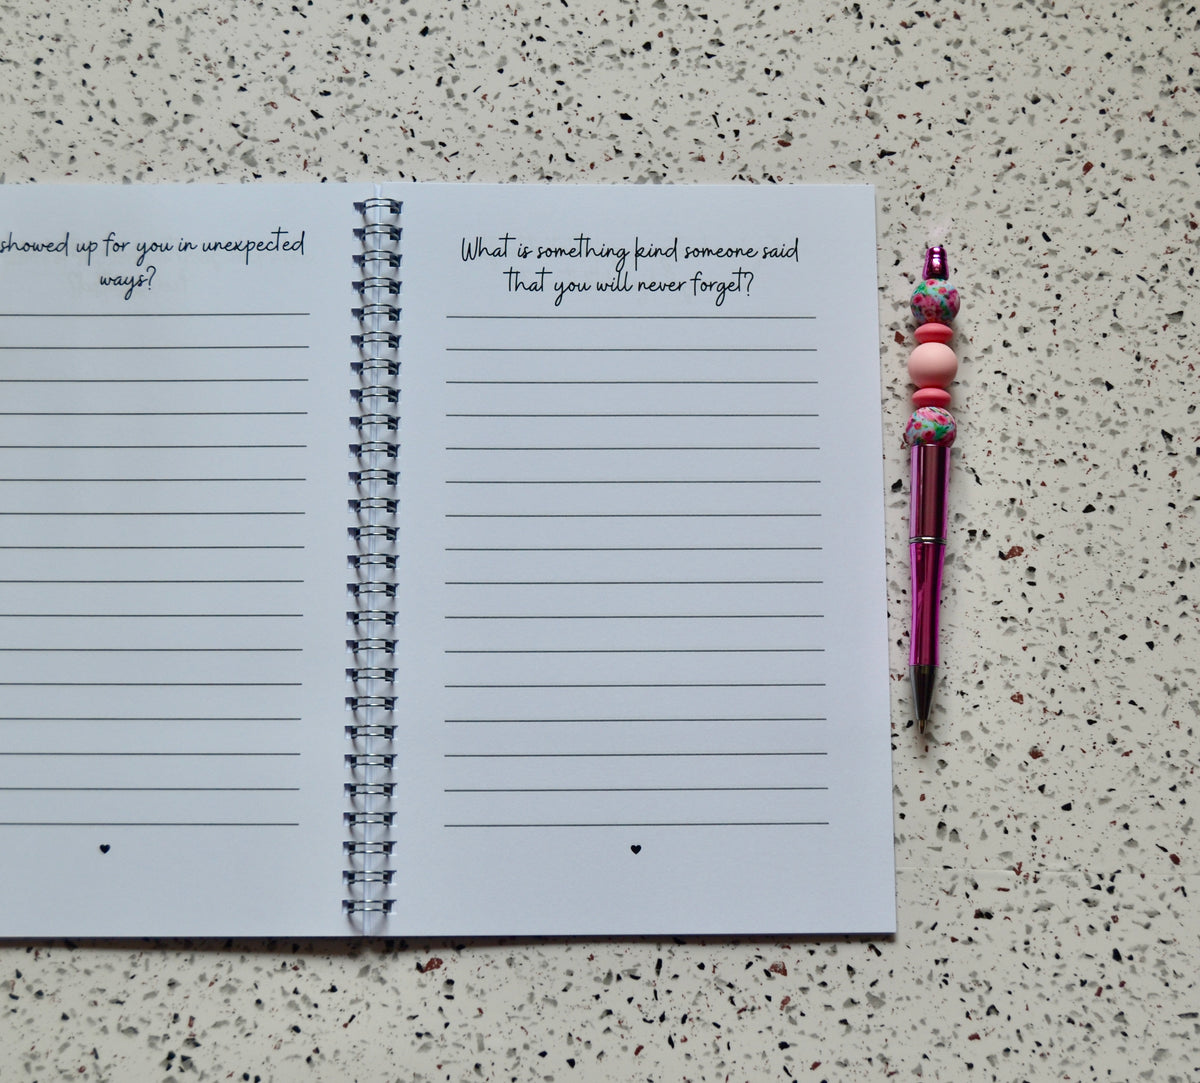 showed up for you in unexpected
ways?
What is something kind someone said
that you will never forget?